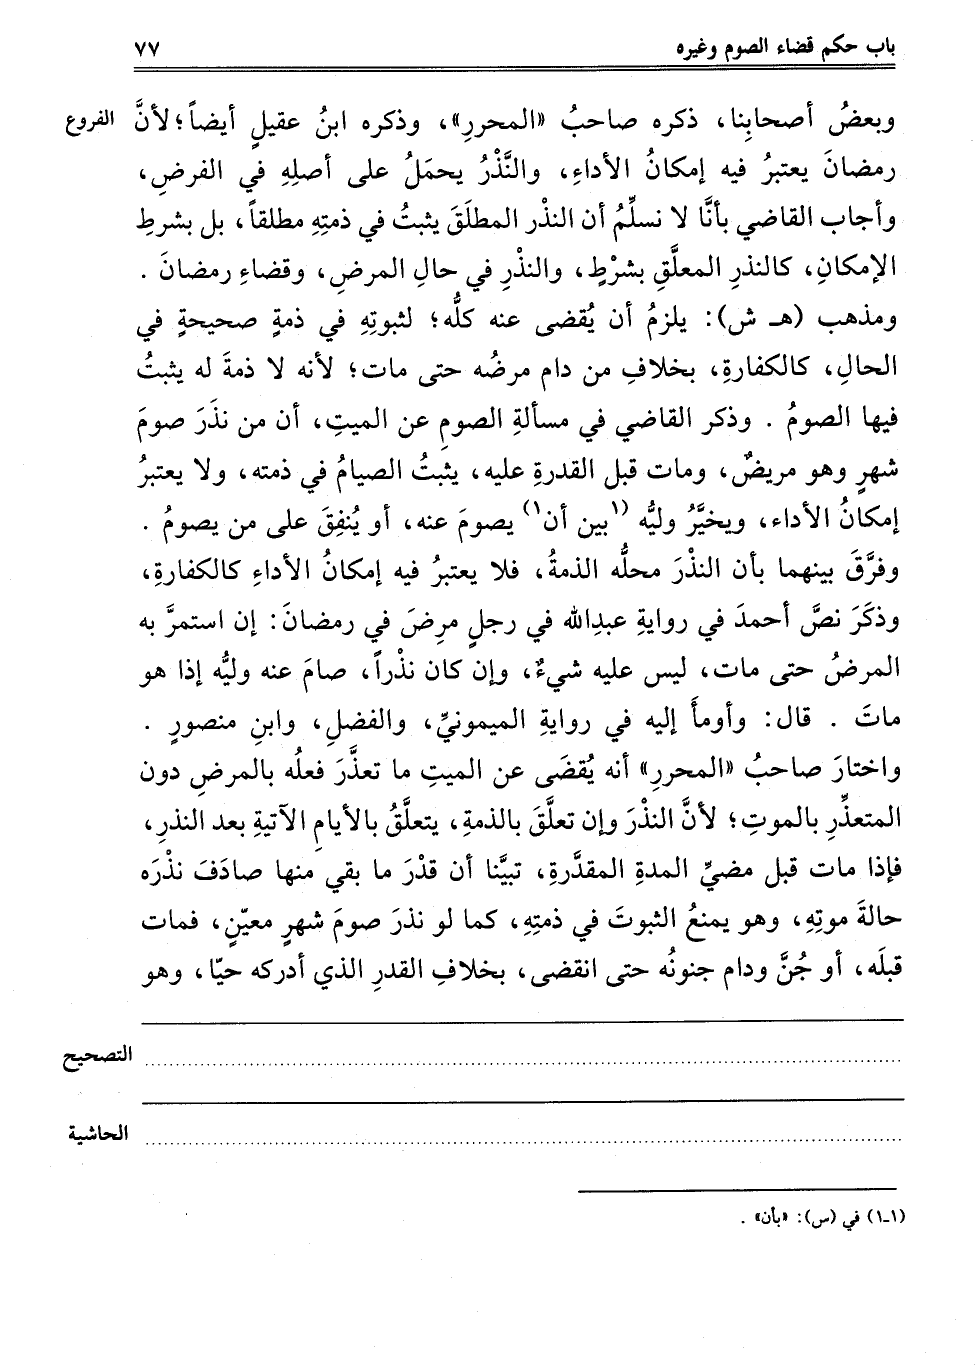 باب حكم قضاء الصوم وغيره ٧٧
وبعضُ أصحابِنا، ذكره صاحبُ «المحررِ»، وذكره ابنُ عقيلٍ أيضاً؛ لأنَّ الفروع
رمضانَ يعتبرُ فيه إمكانُ الأداءِ، والنَّذْرُ يحمَلُ على أصلِهِ في الفرضِ،
وأجاب القاضي بأنَّا لا نسلِّمُ أن النذر المطلَقَ يثبتُ في ذمتِهِ مطلقاً، بل بشرطِ
الإمكانِ، كالنذرِ المعلَّقِ بشرْطٍ، والنذرِ في حالِ المرضِ، وقضاءِ رمضانَ .
ومذهب (هـ ش): يلزمُ أن يُقضى عنه كلُّه؛ لثبوتِهِ في ذمةٍ صحيحةٍ في
الحال، كالكفارةِ، بخلافِ من دام مرضُه حتى مات؛ لأنه لا ذمةَ له يثبتُ
فيها الصومُ . وذكر القاضي في مسألةِ الصومِ عن الميتِ، أن من نذَرَ صومَ
شهرٍ وهو مريضٌ، ومات قبل القدرةِ عليه، يثبتُ الصيامُ في ذمته، ولا يعتبرُ
إمكانُ الأداء، ويخيَّرُ وليُّه (١بين أن١) يصومَ عنه، أو يُنفِقَ على من يصومُ .
وفرَّقَ بينهما بأن النذرَ محلُّه الذمةُ، فلا يعتبرُ فيه إمكانُ الأداءِ كالكفارةِ،
وذكَرَ نصَّ أحمدَ في روايةِ عبدِالله في رجلٍ مرِضَ في رمضانَ: إن استمرَّ به
المرضُ حتى مات، ليس عليه شيءٌ، وإن كان نذْراً، صامَ عنه وليُّه إذا هو
ماتَ . قال: وأومأَ إليه في روايةِ الميمونيِّ، والفضلِ، وابنِ منصورٍ .
واختارَ صاحبُ «المحررِ» أنه يُقضَى عن الميتِ ما تعذَّرَ فعلُه بالمرضِ دون
المتعذِّرِ بالموتِ؛ لأنَّ النذْرَ وإن تعلَّقَ بالذمةِ، يتعلَّقُ بالأيامِ الآتيةِ بعد النذرِ،
فإذا مات قبل مضيِّ المدةِ المقدَّرةِ، تبيَّنا أن قدْرَ ما بقي منها صادَفَ نذْرَه
حالةَ موتِهِ، وهو يمنعُ الثبوتَ في ذمتِهِ، كما لو نذرَ صومَ شهرٍ معيّنٍ، فمات
قبلَه، أو جُنَّ ودام جنونُه حتى انقضى، بخلافِ القدرِ الذي أدركه حيّا، وهو
التصحيح
الحاشية
(١ـ١) في (س): «بأن» .